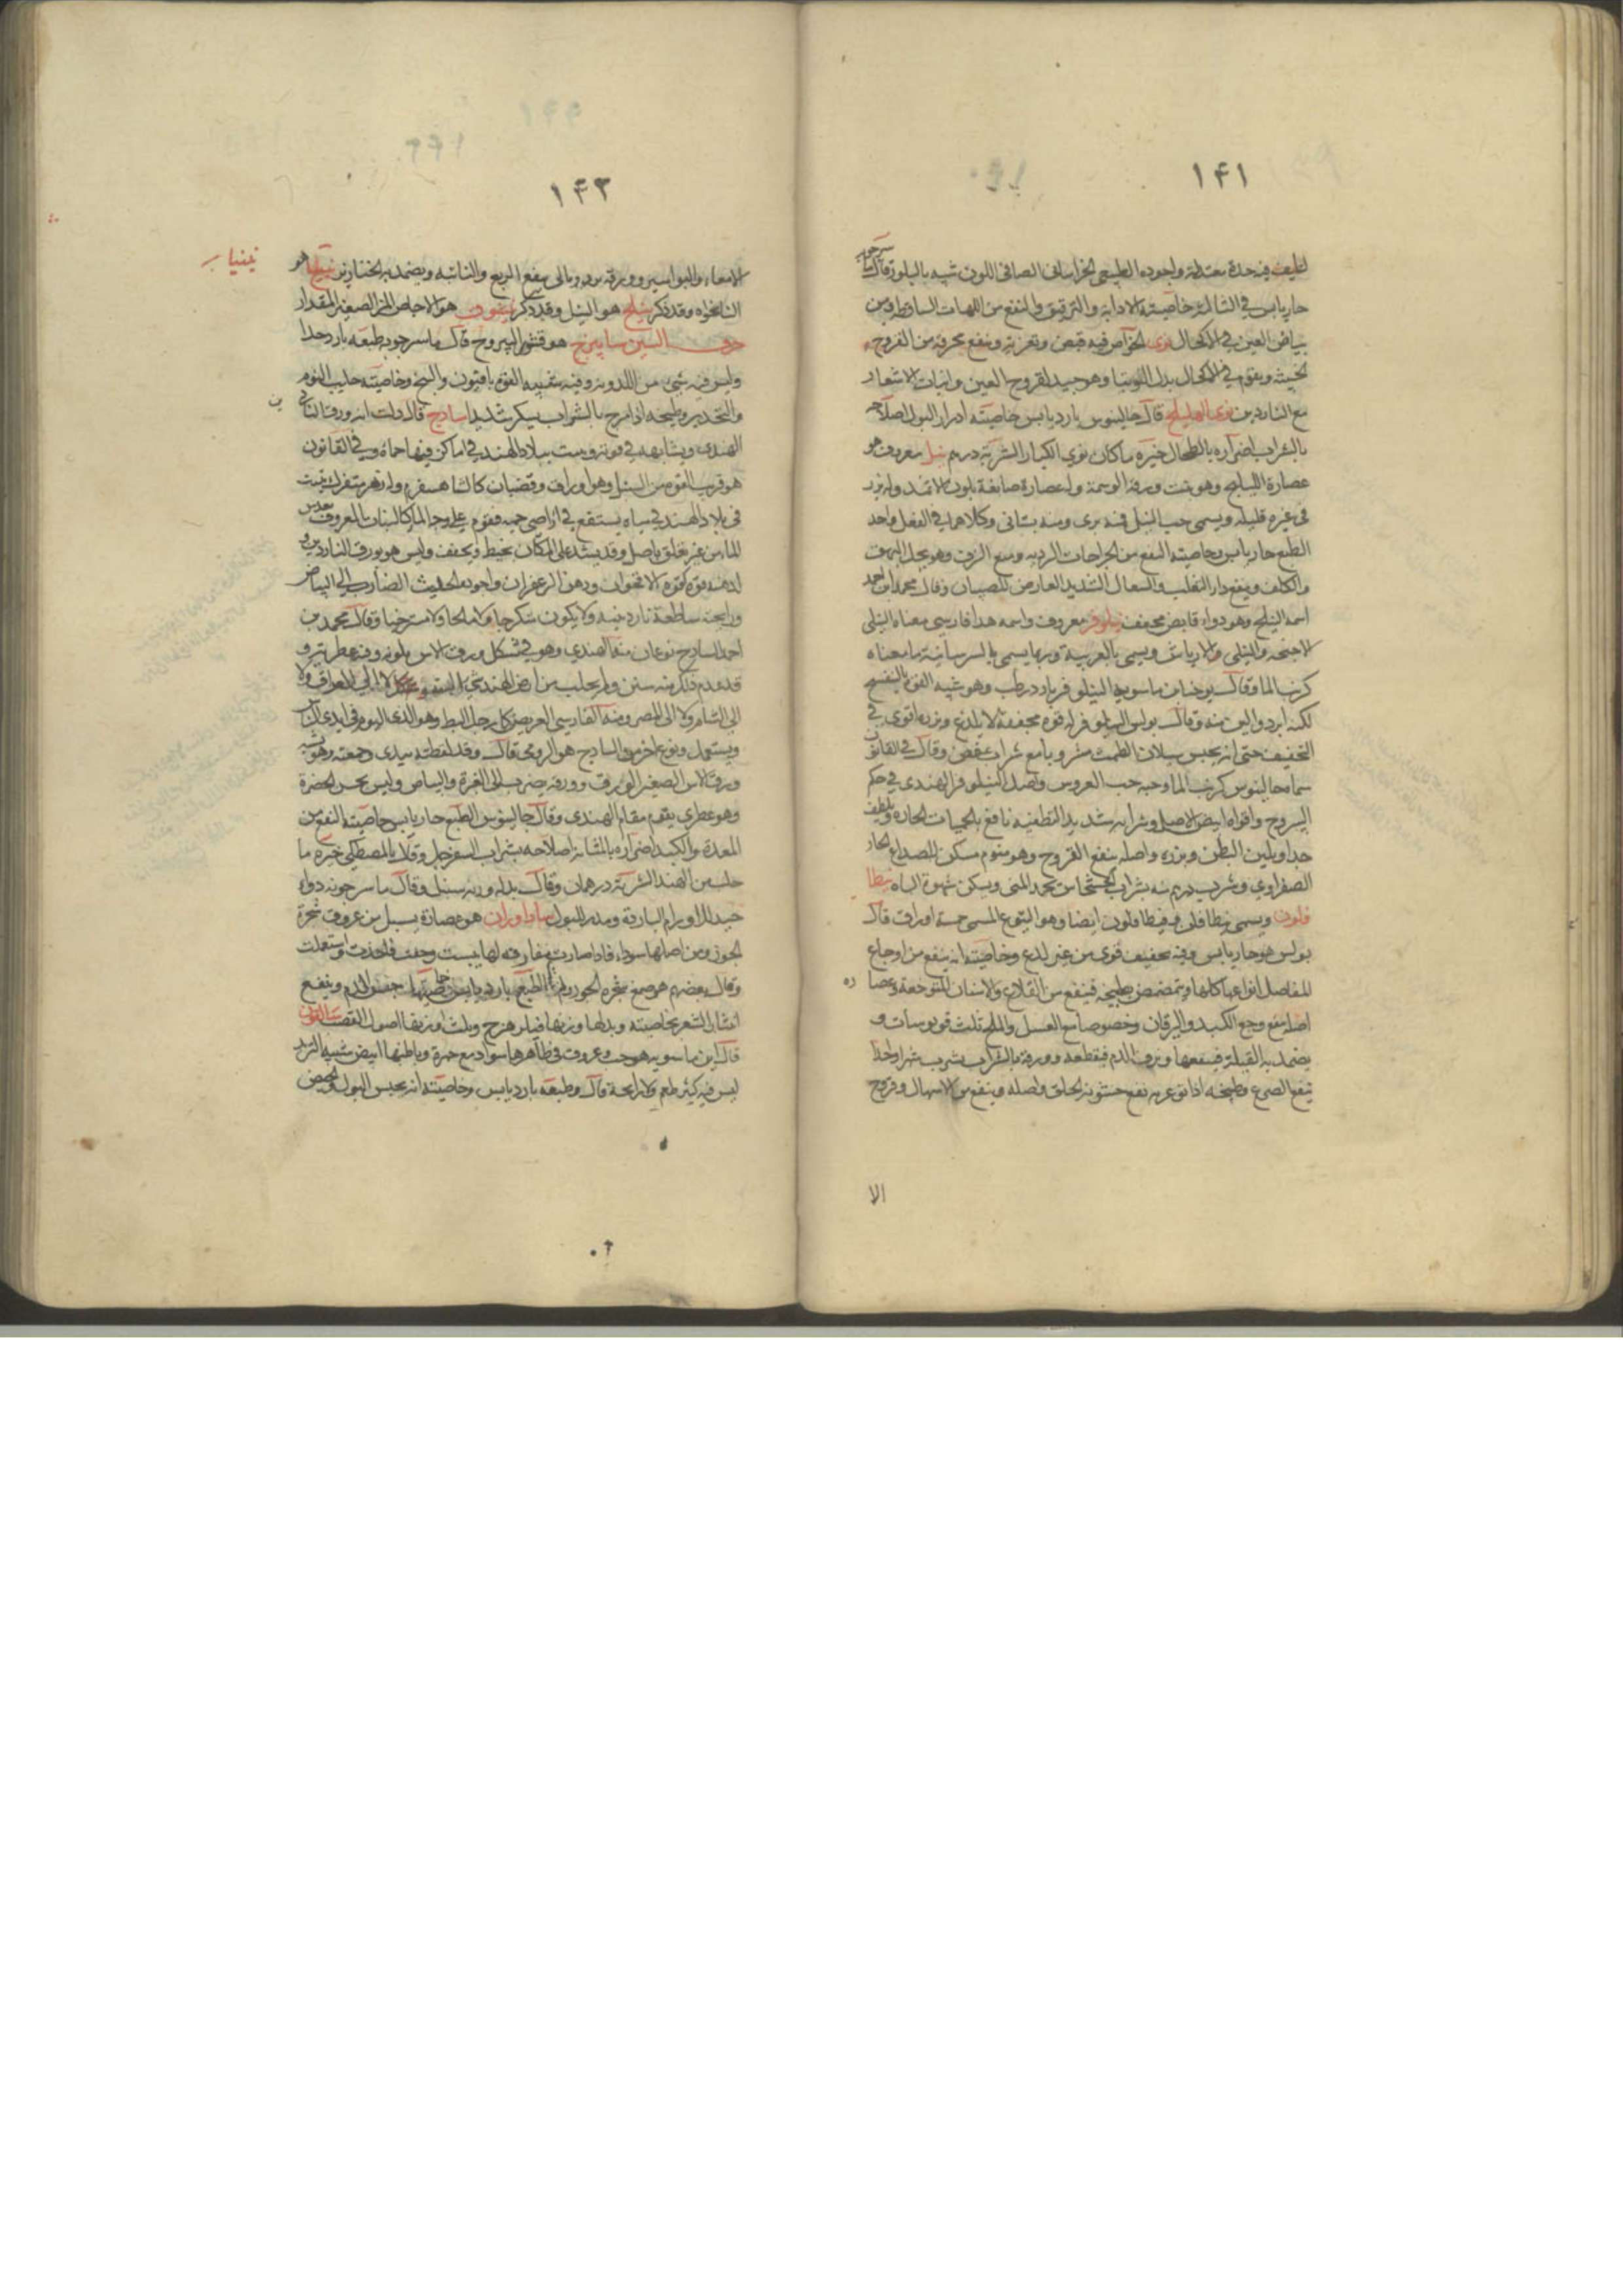 ١٤١
لطيف فيه حدة معتدلة واجوده الطبيعي الخراساني الصافي اللون شبيه بالبلور وقال ماسرجويه
حار يابس في الثالثة خاصيته الاذابة والترقيق والنفع من اللهات الساقطة ومن
بياض العين في الاكحال نوى الخواص فيه قبض وتغرية وينفع محرقه من القروح
الخبيثة ويقوم في الاكحال بدل التوتيا وهو جيد لقروح العين وانبات الاشعار
مع الناردين نوى الهليلج قال جالينوس بارد يابس خاصيته ادرار البول اصلاحه
بالشراب اضراره بالطحال خيره ما كان نوى الكبار الشربة درهم نيل معروف هو
عصارة النيلج وهو نبت ورقه الوسمة وله عصارة صابغة بلون الاثمد وله بزر
في غيره قليله ويسمى حب النيل فمنه بري ومنه بستاني وكلاهما في الفعل واحد
الطبع حار يابس وخاصيته النفع من الجراحات الردية ومنع النزف وهو يحل البهق
والكلف وينفع داء الثعلب والسعال الشديد العارض للصبيان وقال محمد بن احمد
اسمه النيلج وهو دواء قابض مجفف نيلوفر معروف واسمه هذا فارسي معناه النيلي
الاجنحة والنيلي الارياش ويسمى بالعربية وربما يسمى بالسريانية ما معناه
كرنب الما وقال يوحنا بن ماسويه النيلوفر بارد رطب وهو شبيه القوة بالبنفسج
لكنه ابرد والين منه وقال بولس النيلوفر له قوة مجففة لا بلذع وبزره اقوى في
التجفيف حتى انه يحبس سيلان الطمث مشروبا مع شراب عفص وقال في القانون
سماه جالينوس كرنب الما وحبه حب العروس واصل النيلوفر الهندي في حكم
اليبروح واقواه ابيض الاصل وشرابه شديد التطفية نافع للحميات الحارة ويلطف
جدا ويلين البطن وبزره واصله ينفع القروح وهو منوم مسكن للصداع الحار
الصفراوي وشرب درهم منه بشراب الخشخاش يجمد المني ويسكن شهوة الباه نيطا
فلون ويسمى نيطافلي وفيطافلون ايضا وهو اليتوع المسمى خمسة اوراق قال
بولس هو حار يابس وفيه تجفيف قوي من غير لذع وخاصيته انه ينفع من اوجاع
المفاصل انواعها كلها ويتمضمض بطبيخه فينفع من القلاع والاسنان المتوجعة وعصارة
اصله ينفع وجع الكبد واليرقان وخصوصا مع العسل والملح ثلث قوبوسات و
يضمد به القيلة فينفعها وبنزف الدم فيقطعه وورقه بالشراب يشرب شهرا واحدا
ينفع الصرع وطبيخه اذا تغرغر به نفع خشونة الحلق واصله ينفع من الاسهال وقروح
الا
١٤٢
الامعاء والبواسير وورقه برده وبالي ينفع الربع والنائبة ويضمد به الخنازير نينيا هو
نينيا
النانخواه وقد ذكر نيلج هو النيل وقد ذكر نيشوق هو الاجاص المز الصغير المقدار
حرف السين سابيزج هو قشور اليبروح قال ماسرجويه طبعه بارد جدا
وليس فيه شيء من اللدونة وفيه شبيه القوة بافيون والبنج وخاصيته جلب النوم
والتخدير وطبيخه اذا مزج بالشراب يسكر شديدا ساذج قال دلت انه ورق الناردين
الهندي ويشابهه في قوته ونبت ببلاد الهند في اماكن فيها حماة وفي القانون
هو قريب القوة من السنبل وهو اوراق وقضبان كالشاهسفرم وله زهر متفرك ينبت
في بلاد الهند في مياه يستنقع في اراضي حمية فيقوم على وجه الما كالنبات المعروف بعدس
الما من غير تعلق باصل وقد يشد على المكان بخيط ويجفف وليس هو بورق الناردين و
لدهنه قوة كقوة الاقحوان ودهن الزعفران واجوده الحديث الضارب الى البياض
ورايحته ساطعة ناردينية ولا يكون متكرجا ولا مالحا ولا مسترخيا وقال محمد بن
احمد الساذج نوعان منه الهندي وهو في شكل ورق الاس بلونه وفيه عطرية و
قد عدم ذلك منذ سنين ولم يجلب من ارض الهند شيء لا الى العراق ولا
الى الشام ولا الى المصر ومنه الفارسي العريض كارجل البط وهو الذي اليوم في ايدي الناس
ويستعمل ونوع اخر من الساذج هو الرومي قال وقد لقطته بيدي وجمعته وهو شبيه
ورق الاس الصغير الورق وورقه يضرب الى الغبرة والبياض وليس بحسن الخضرة
وهو عطري يقوم مقام الهندي وقال جالينوس الطبع حار يابس خاصيته النفع من
المعدة والكبد اضراره بالمثانة اصلاحه بشراب السفرجل وقلا بالمصطكي خيره ما
جلب من الهند الشربة درهمان وقال بدله وزنه سنبل وقال ماسرجويه دواء
جيد للاورام الباردة ومدر للبول ساداوران هو عصارة يسيل من عروق شجرة
الجوز ومن اصلها سوداء فاذا صارت مفارقة لها يبست وجفت فاخذت واستعملت
وقال بعضهم هو صمغ شجرة الجوز الطبع بارد يابس خاصيتها حبس الدم وينفع
انتثار الشعر بخاصيته وبدلها وزنها فيلزهرج وثلث اوزنها اصول القصب ساليقون
قال ابن ماسويه هو خشب وعروق في ظاهرها سواد مع حمرة وباطنها ابيض شبيه التربد
ليس فيه كثير طعم ولا رايحة قال وطبعه بارد يابس وخاصيته انه يحبس البول والحيض